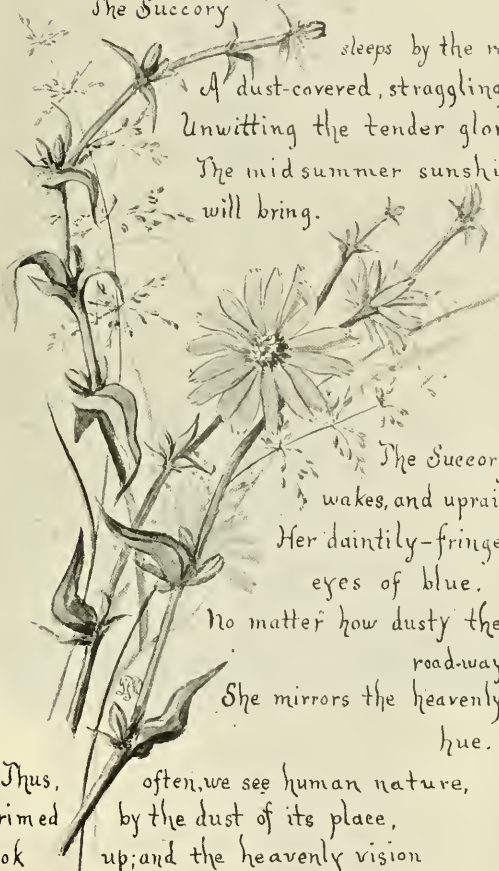 The Succory
sleeps by the r
A dust-covered, straggling
Unwitting the tender glor
The midsummer sunshi
will bring.
The Succor
wakes, and uprai
Her daintily-fringe
eyes of blue.
No matter how dusty the
road-way
She mirrors the heavenly
hue.
Thus, often, we see human nature,
rimed by the dust of its place,
ok up; and the heavenly vision